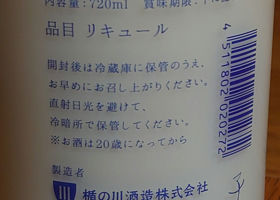 内容量:720ml 賞味期限:
品目 リキュール
開封後は冷蔵庫に保管のうえ、
お早めにお召し上がりください。
直射日光を避けて、
冷暗所で保管してください。
※お酒は20歳になってから
製造者
楯の川酒造株式会社
4511802020272